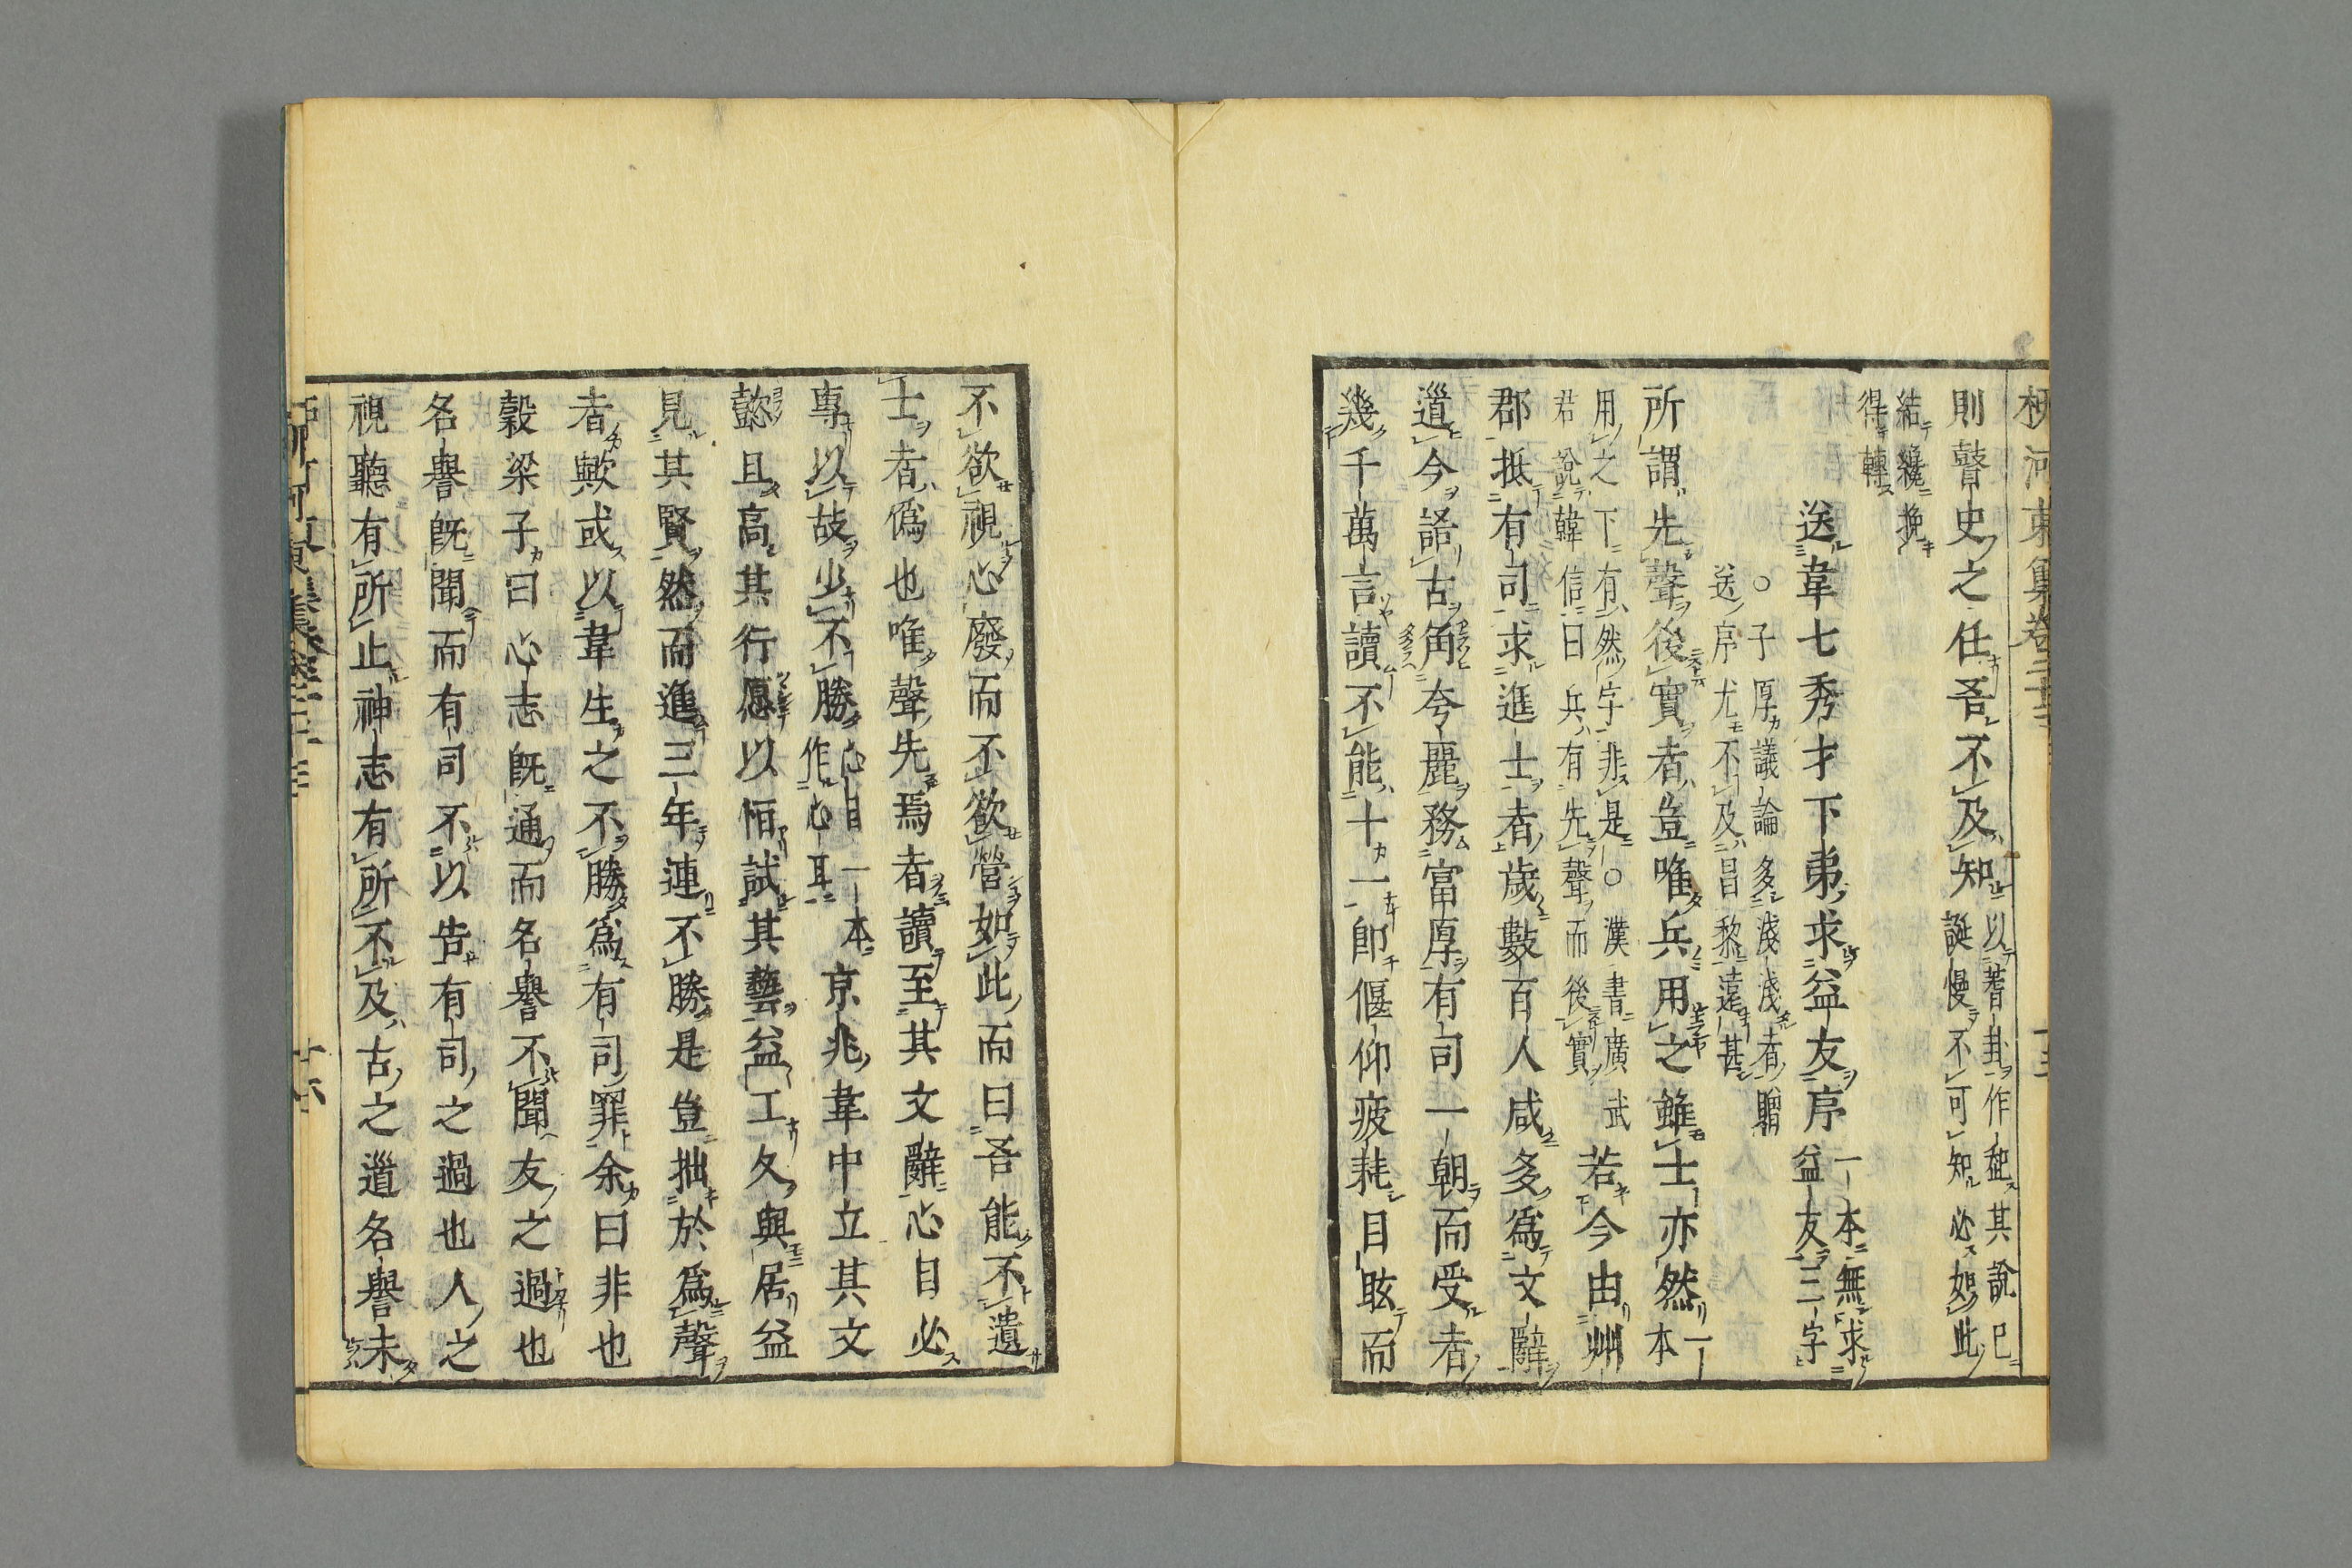 柳河東集卷二十三
則瞽史之任吾不及知
以蓍卦作秘其說已
誕慢不可知必如此
結纔挽
得轉
送韋七秀才下第求益友序
一本無求
益友三字
○子厚議論多淺淺者贈
送序尤不及昌黎遠甚
所謂先聲後實者豈唯兵用之雖士亦然
一
本
用之下有然字非是○漢書廣武
君說韓信曰兵有先聲而後實
若今由州
郡抵有司求進士者歲數百人咸多爲文辭
道今語古角夸麗務富厚有司一朝而受者
幾千萬言讀不能十一卽偃仰疲耗目眩而
不欲視心廢而不欲營如此而曰吾能不遺
士者僞也唯聲先焉者讀至其文辭心目必
專以故少不勝
心目一本
作心耳
京兆韋中立其文
懿且高其行愿以恒試其藝益工久與居益
見其賢然而進三年連不勝是豈拙於爲聲
者歟或以韋生之不勝爲有司罪余曰非也
穀梁子曰心志既通而名譽不聞友之過也
名譽既聞而有司不以告有司之過也人之
視聽有所止神志有所不及古之道名譽未